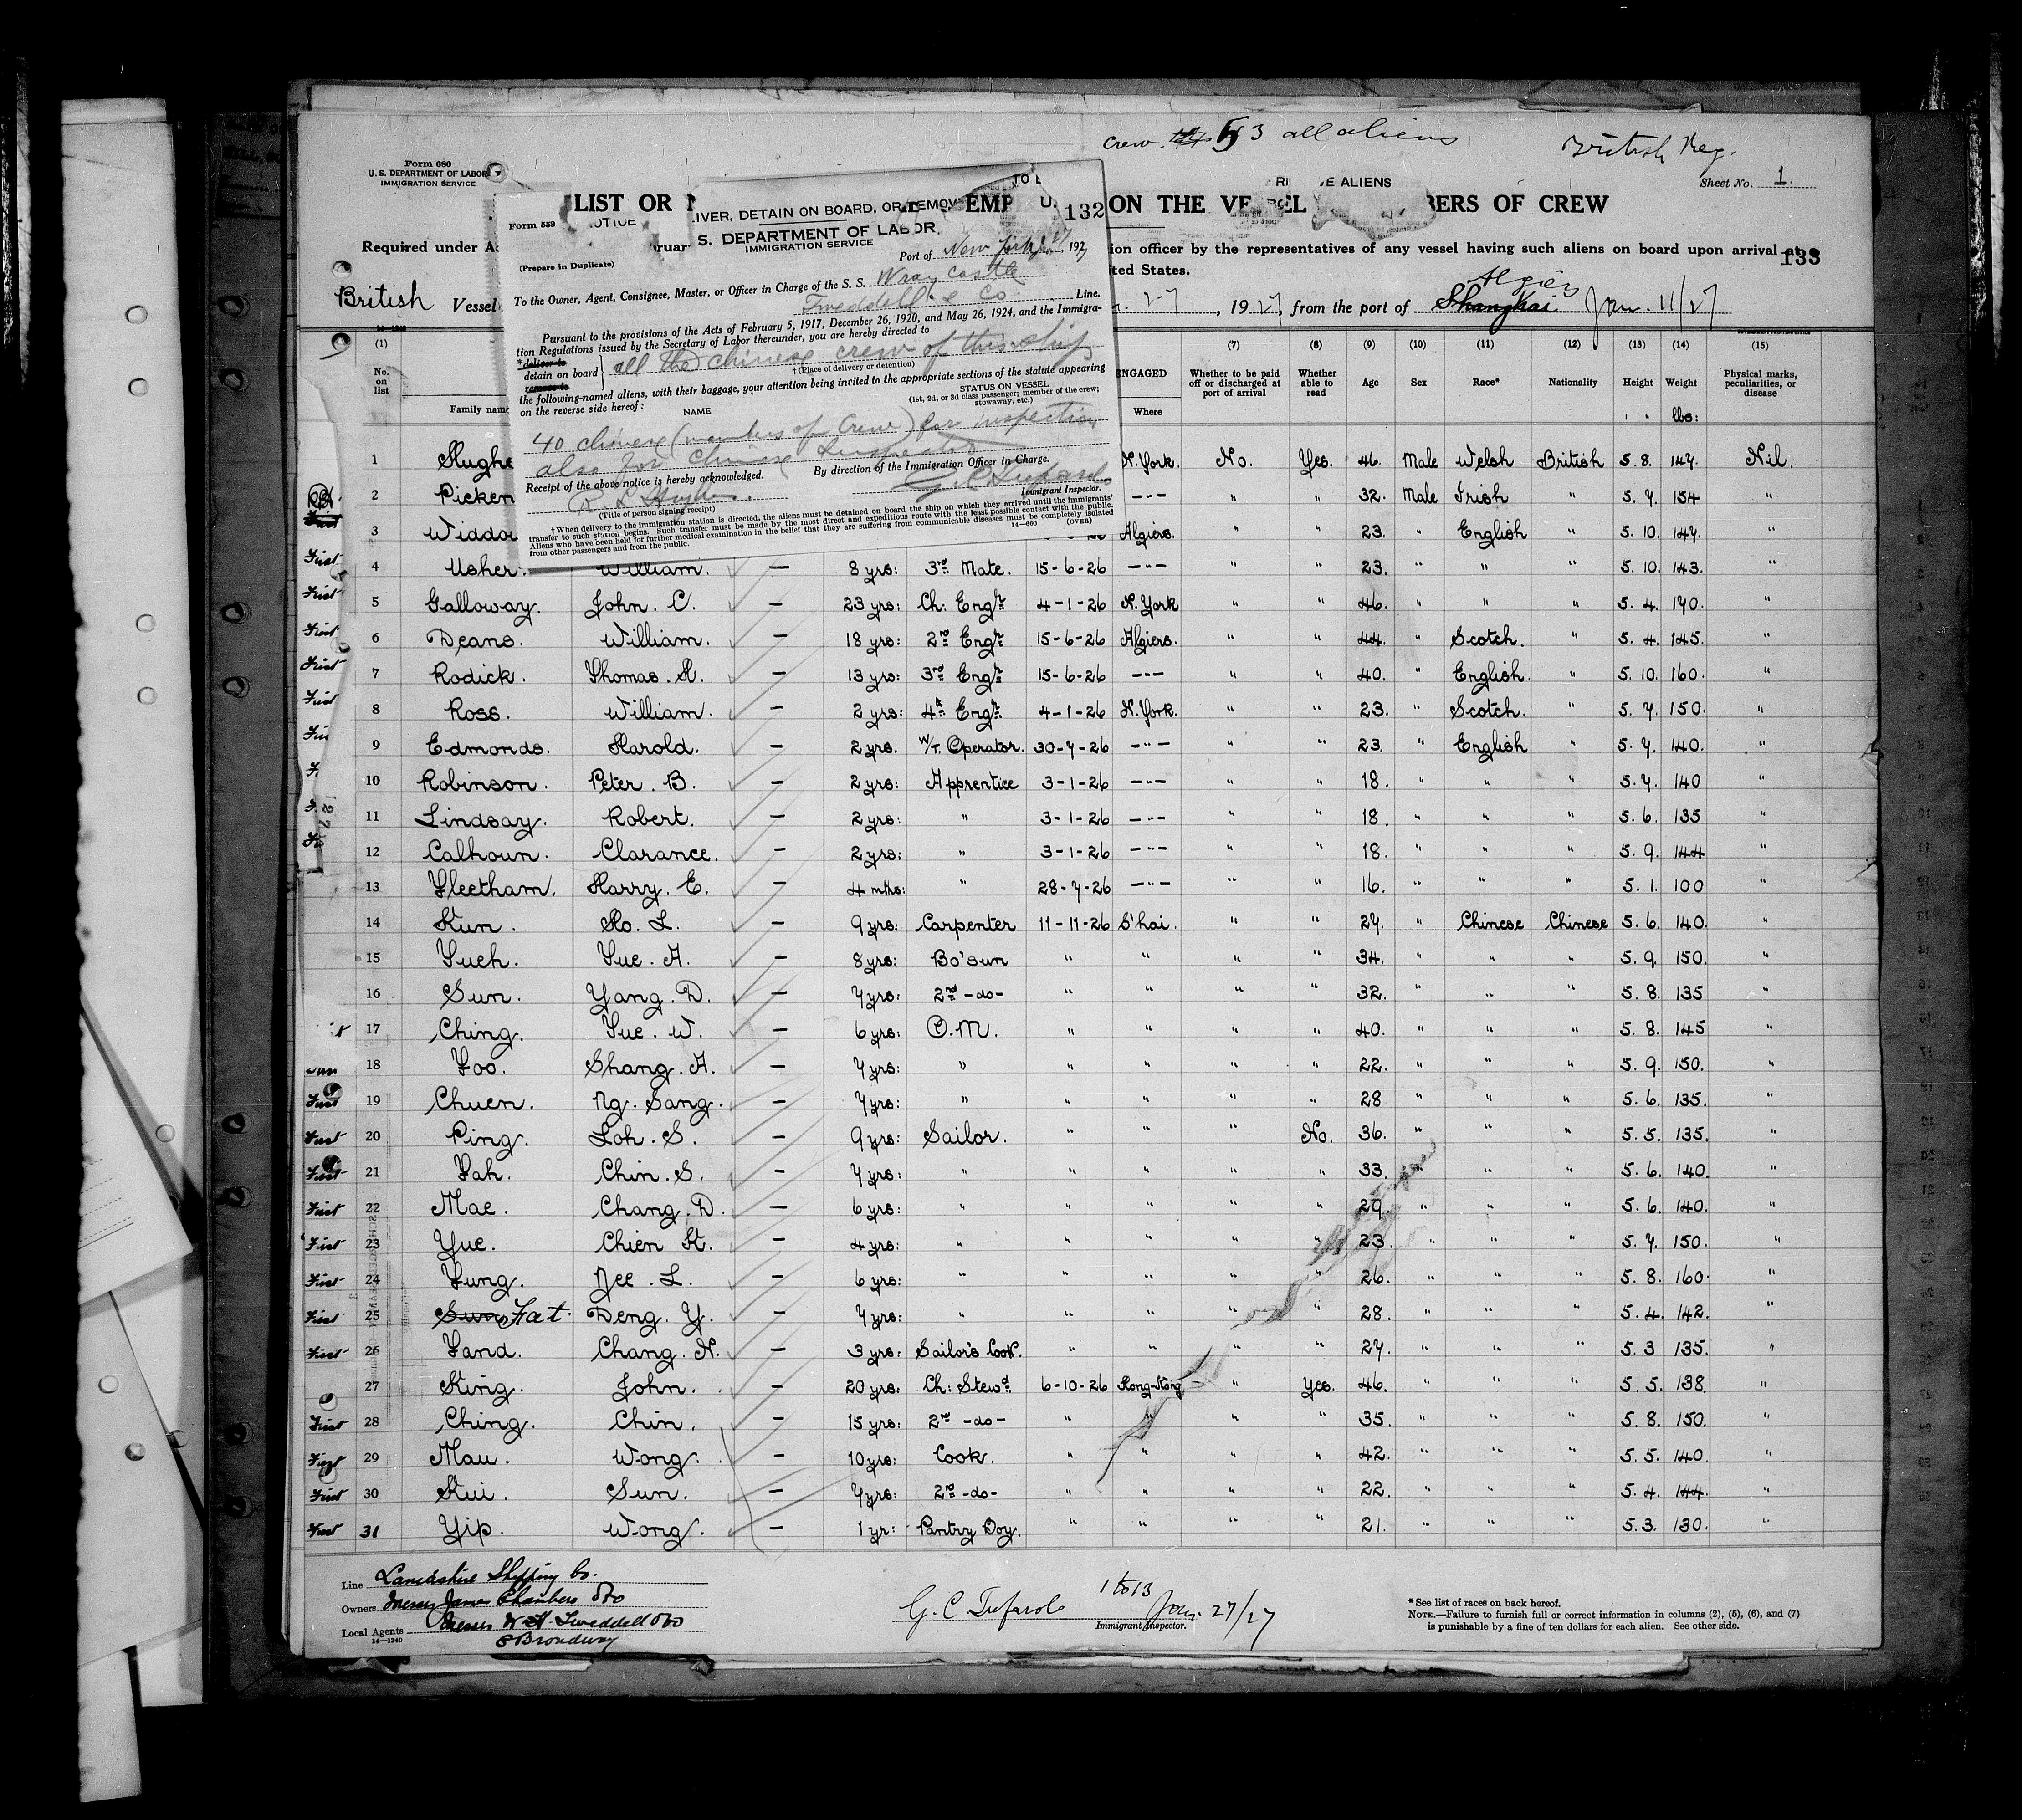 Crew 53 all aliens
British Reg.
Form 680
U. S. DEPARTMENT OF LABOR
IMMIGRATION SERVICE
Sheet No. 1
LIST OR
EMP
ON THE VE
BERS OF CREW
E ALIENS
Required under Ac
ion officer by the representatives of any vessel having such aliens on board upon arrival at a
133
ted States.
British Vessel
, 1927, from the port of Shanghai Algiers Jan. 11/27
Form 559
NOTICE
LIVER, DETAIN ON BOARD, OR REMOV
132
S. DEPARTMENT OF LABOR,
IMMIGRATION SERVICE
(Prepare in Duplicate)
Port of New York 1927
To the Owner, Agent, Consignee, Master, or Officer in Charge of the S. S. Wray Castle
Tweddell & Co. Line.
Pursuant to the provisions of the Acts of February 5, 1917, December 26, 1920, and May 26, 1924, and the Immigra-
tion Regulations issued by the Secretary of Labor thereunder, you are hereby directed to
*deliver to
detain on board
remove to
all the chinese crew of this ship
†(Place of delivery or detention)
the following-named aliens, with their baggage, your attention being invited to the appropriate sections of the statute appearing
on the reverse side hereof:
NAME
STATUS ON VESSEL
(1st, 2d, or 3d class passenger; member of the crew;
stowaway, etc.)
40 chinese (members of Crew) for inspection
also for Chinese Inspector
Receipt of the above notice is hereby acknowledged.
By direction of the Immigration Officer in Charge.
R. L. Hughes.
(Title of person signing receipt)
Immigrant Inspector.
†When delivery to the immigration station is directed, the aliens must be detained on board the ship on which they arrived until the immigrants'
transfer to such station begins. Such transfer must be made by the most direct and expeditious route with the least possible contact with the public.
Aliens who have been held for further medical examination in the belief that they are suffering from communicable diseases must be completely isolated
from other passengers and from the public.
14—660
(OVER)
(1) (7) (8) (9) (10) (11) (12) (13) (14) (15)
No. on list
Family name
ENGAGED
Where
Whether to be paid off or discharged at port of arrival
Whether able to read
Age
Sex
Race*
Nationality
Height
Weight
lbs:
Physical marks, peculiarities, or disease
1 Hughe N. York. No. Yes. 46. Male Welsh British 5. 8. 147. Nil.
2 Picken —"— " " 32. Male Irish " 5. 7. 154 "
3 Widdo Algiers. " " 23. " English " 5. 10. 147. "
First 4 Usher. William. — 8 yrs: 3rd Mate. 15-6-26 —"— " " 23. " " " 5. 10. 143. "
First 5 Galloway. John. C. — 23 yrs: Ch: Engr 4-1-26 N. York " " 46. " " " 5. 4. 170. "
First 6 Deans. William. — 18 yrs: 2nd Engr 15-6-26 Algiers. " " 44. " Scotch. " 5. 4. 145. "
First 7 Rodick. Thomas. H. — 13 yrs: 3rd Engr 15-6-26 —"— " " 40. " English. " 5. 10. 160. "
First 8 Ross. William. — 2 yrs: 4th Engr. 4-1-26 N. York. " " 23. " Scotch. " 5. 7. 150. "
9 Edmonds. Harold. — 2 yrs. W/T. Operator. 30-7-26 —"— " " 23. " English " 5. 7. 140. "
10 Robinson. Peter. B. — 2 yrs: Apprentice 3-1-26 —"— " " 18. " " " 5. 7. 140 "
11 Lindsay. Robert. — 2 yrs: " 3-1-26 —"— " " 18. " " " 5. 6. 135 "
12 Calhoun. Clarance. — 2 yrs: " 3-1-26 —"— " " 18. " " " 5. 9. 144 "
13 Fleetham. Harry. E. — 4 mths: " 28-7-26 —"— " " 16. " " " 5. 1. 100 "
14 Kun. Ho. L. — 9 yrs: Carpenter 11-11-26 S'hai. " " 27. " Chinese Chinese 5. 6. 140. "
15 Yueh. Yue. A. — 8 yrs: Bo'sun " " " " 34. " " " 5. 9. 150. "
16 Sun. Yang. D. — 7 yrs: 2nd -do- " " " " 32. " " " 5. 8. 135 "
17 Ching. Yue. W. — 6 yrs: Q.M. " " " " 40. " " " 5. 8. 145 "
18 Foo. Shang. A. — 7 yrs: " " " " " 22. " " " 5. 9. 150. "
First 19 Chuen. Ng. Sang. — 7 yrs: " " " " " 28 " " " 5. 6. 135. "
First 20 Ping. Loh. S. — 9 yrs: Sailor. " " " No. 36. " " " 5. 5. 135. "
First 21 Fah. Chin. S. — 7 yrs: " " " " " 33. " " " 5. 6. 140. "
First 22 Mae. Chang. D. — 6 yrs: " " " " " 29. " " " 5. 6. 140. "
First 23 Yue. Chien K. — 4 yrs: " " " " " 23. " " " 5. 7. 150. "
First 24 Yung. Nee. L. — 6 yrs: " " " " " 26. " " " 5. 8. 160. "
First 25 Sun Fat. Deng. Y. — 7 yrs: " " " " " 28. " " " 5. 4. 142. "
First 26 Fand. Chang. N. — 3 yrs: Sailor's Cook. " " " " 27. " " " 5. 3 135. "
27 King. John. — 20 yrs: Ch: Stewd 6-10-26 Hong-Kong " Yes. 46. " " " 5. 5. 138. "
First 28 Ching. Chin. — 15 yrs: 2nd -do- " " " " 35. " " " 5. 8. 150. "
First 29 Mau. Wong. — 10 yrs: Cook. " " " " 42. " " " 5. 5. 140. "
First 30 Kui. Sun. — 7 yrs: 2nd -do- " " " " 22. " " " 5. 4. 144. "
First 31 Yip. Wong. — 1 yr: Pantry Boy. " " " " 21. " " " 5. 3. 130. "
Line Lancashire Shipping Co.
Owners Messrs James Chambers & Co
Local Agents Messrs W. H. Tweddell & Co
8 Broadway
14—1240
1 to 13
Jan. 27/27
Immigrant Inspector.
*See list of races on back hereof.
NOTE.—Failure to furnish full or correct information in columns (2), (5), (6), and (7)
is punishable by a fine of ten dollars for each alien. See other side.